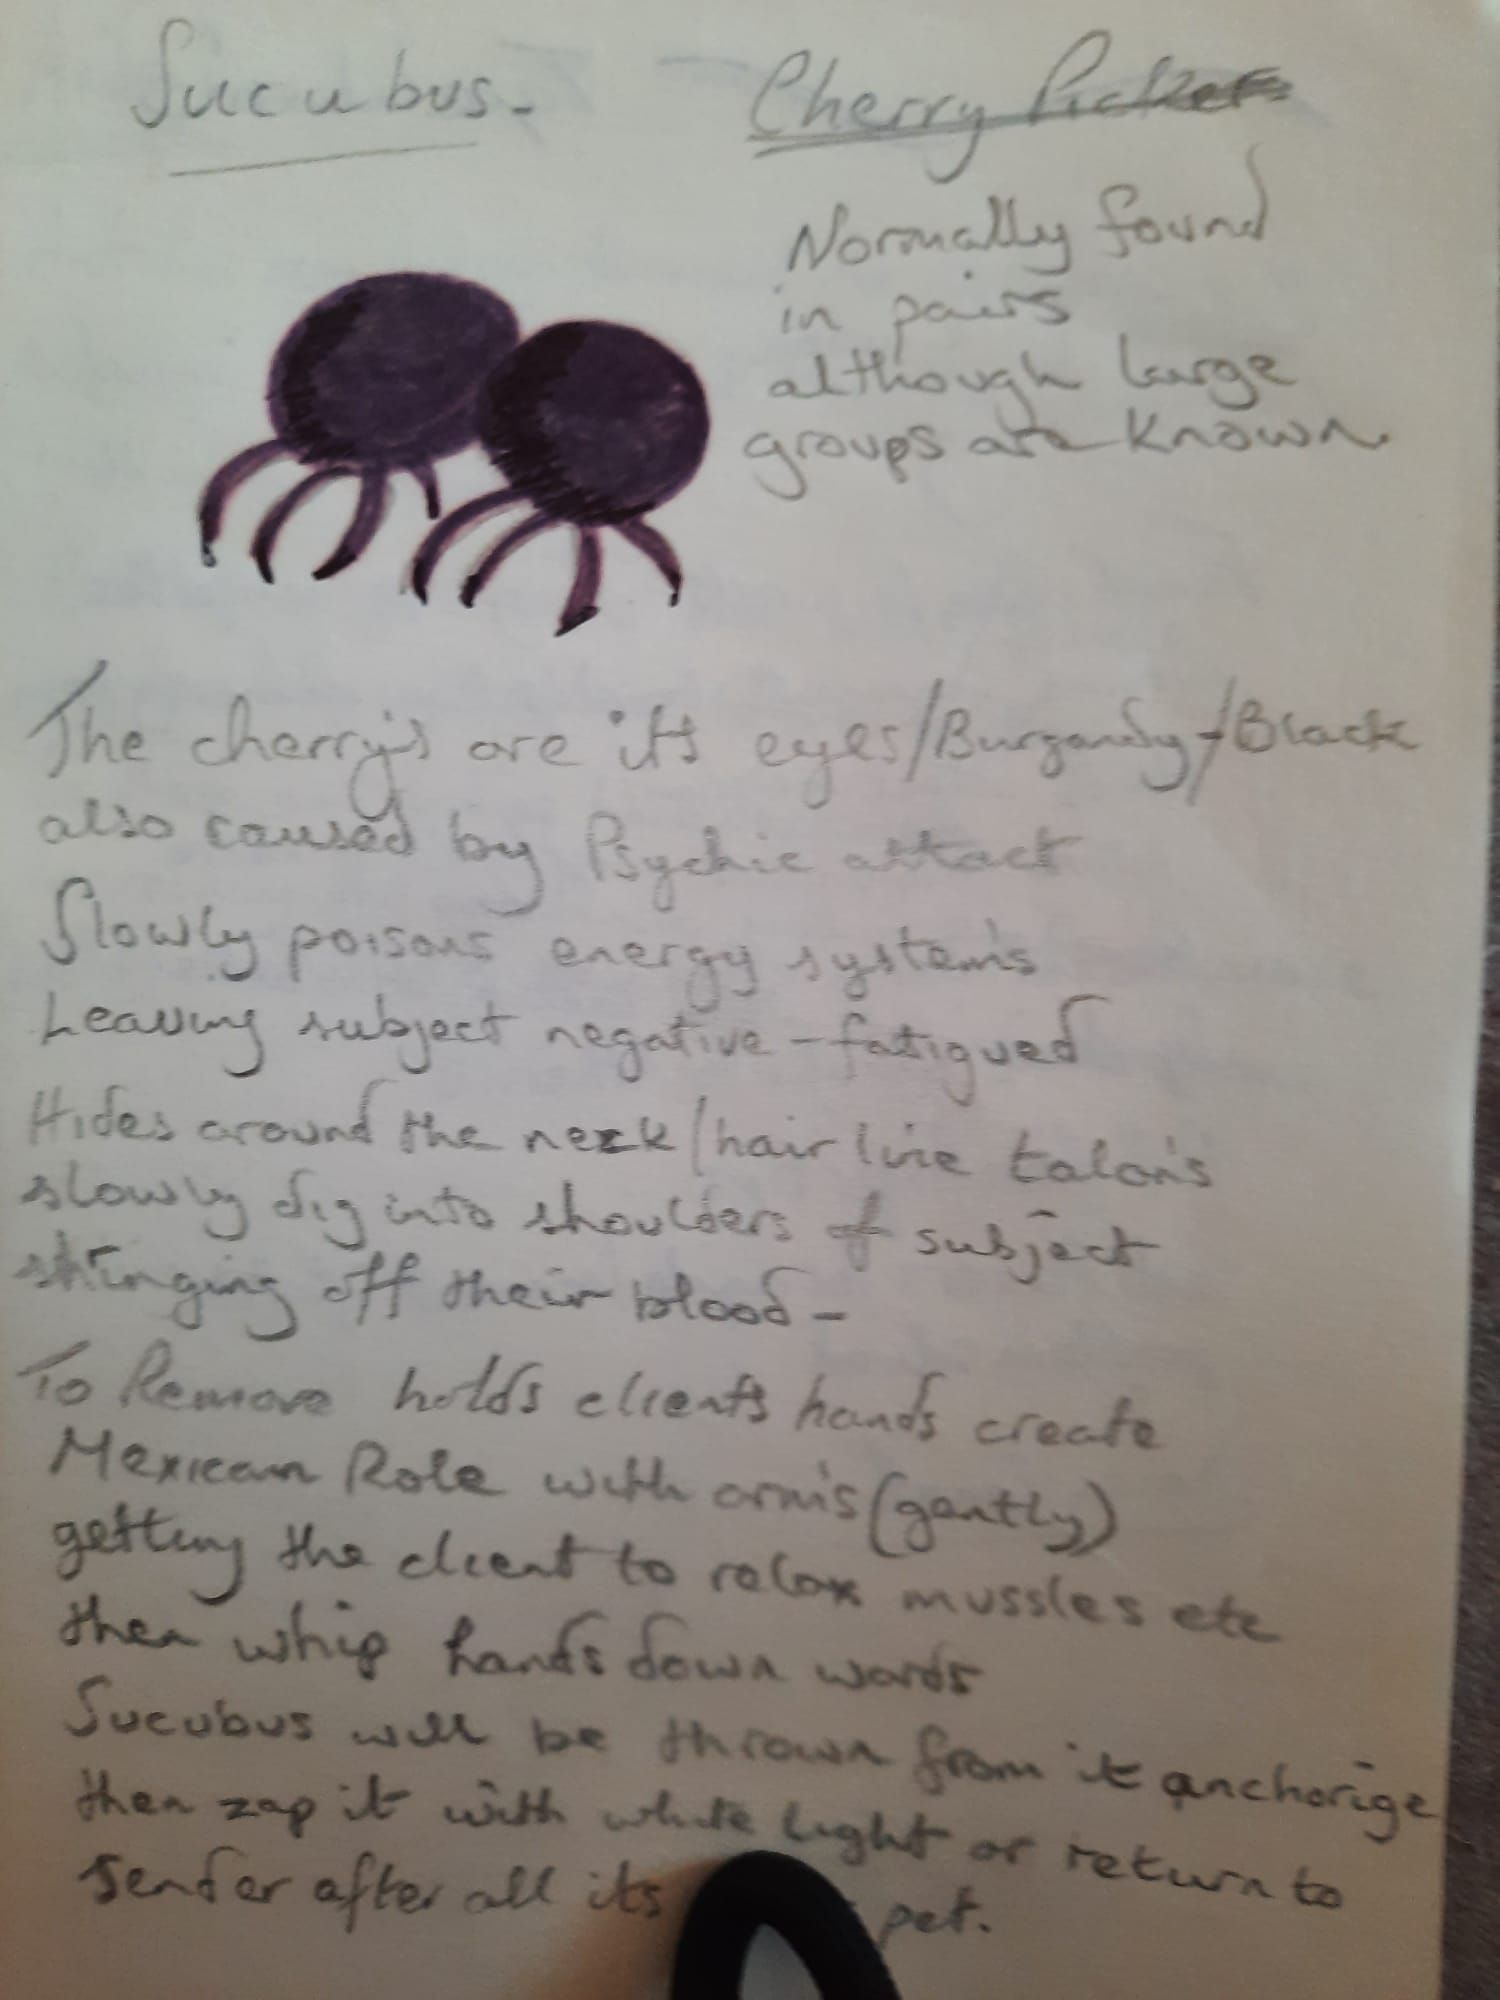 Sucubus -
Cherry Picker
Normally found
in pairs
although large
groups are known.
The cherry's are it's eyes/Burgandy/Black
also caused by Psychic attack
Slowly poisons energy system's
Leaving subject negative - fatigued
Hides around the neck/hair line talon's
slowly dig into shoulders of subject
off their blood -
To Remove holds clients hands create
Mexican Role with arm's (gently)
getting the client to relax mussles etc
then whip hands down wards
Sucubus will be thrown from it anchorige
then zap it with white light or return to
sender after all its pet.